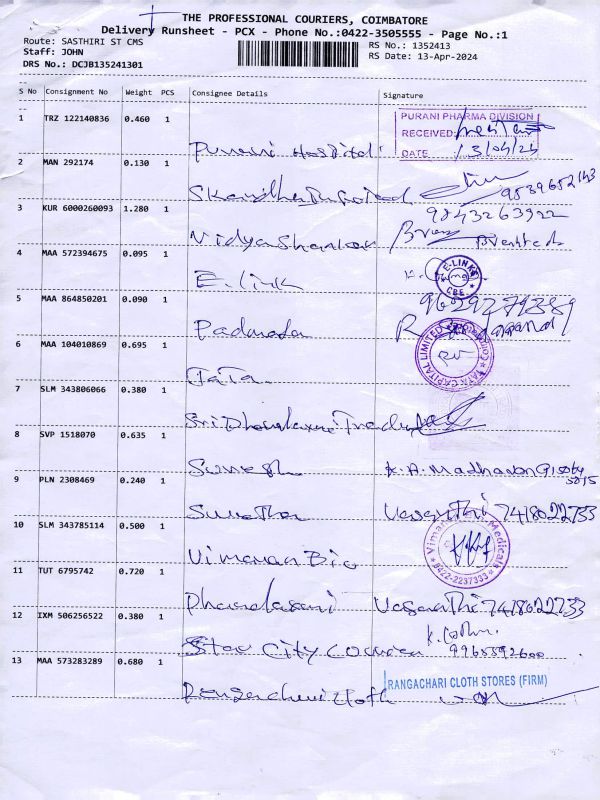 THE PROFESSIONAL COURIERS, COIMBATORE
Delivery Runsheet - PCX - Phone No.:0422-3505555 - Page No.:1
Route: SASTHIRI ST CMS
RS No.: 1352413
Staff: JOHN
RS Date: 13-Apr-2024
DRS No.: DCJB135241301
S No Consignment No Weight PCS Consignee Details Signature
1 TRZ 122140836 0.460 1
PURANI PHARMA DIVISION
RECEIVED:
DATE 13/04/24
Purani Hospital
2 MAN 292174 0.130 1
3 KUR 6000260093 1.280 1
9843263922
Vidya Shankar
4 MAA 572394675 0.095 1
E-LINK
CBE
E-link
5 MAA 864850201 0.090 1
Padmada
6 MAA 104010869 0.695 1
TATA CAPITAL LIMITED
TaTa
7 SLM 343806066 0.380 1
8 SVP 1518070 0.635 1
Suresh K.A. Madhavan
9 PLN 2308469 0.240 1
Vasanthi 7418022733
10 SLM 343785114 0.500 1
Vimanan Bio
Medicals
0422-2237333
11 TUT 6795742 0.720 1
Vasanthi 7418022733
12 IXM 506256522 0.380 1
Star City Courier
13 MAA 573283289 0.680 1
RANGACHARI CLOTH STORES (FIRM)